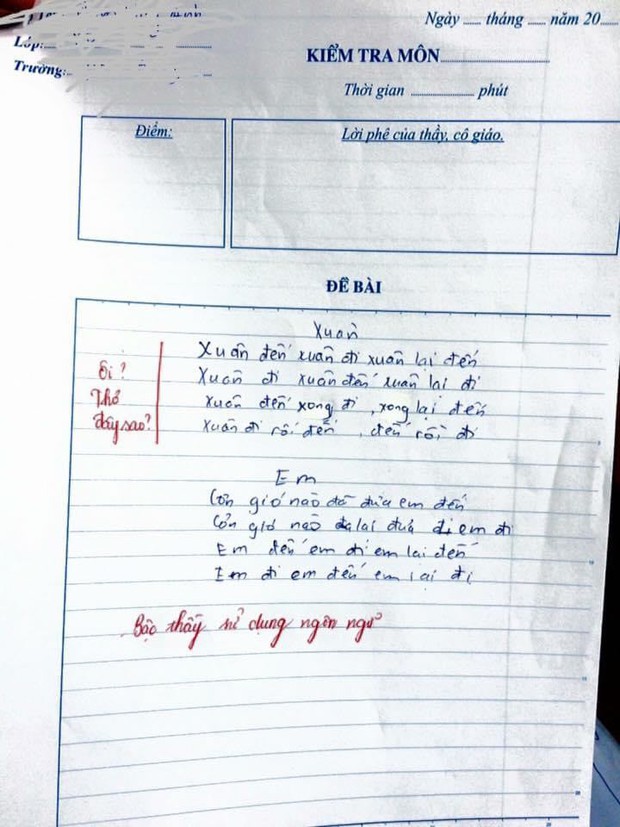 Ngày ..... tháng ..... năm 20.....
Lớp:
KIỂM TRA MÔN
Trường:
Thời gian ............ phút
Điểm:
Lời phê của thầy, cô giáo.
ĐỀ BÀI
Xuân
Xuân đến xuân đi xuân lại đến
Xuân đi xuân đến xuân lại đi
Xuân đến xong đi, xong lại đến
Xuân đi rồi đến, đến rồi đi
Ôi?
Thơ
đây sao?
Em
Cơn gió nào đã đưa em đến
Cơn gió nào lại đưa em đi
Em đến em đi em lại đến
Em đi em đến em lại đi
Bậc thầy sử dụng ngôn ngữ